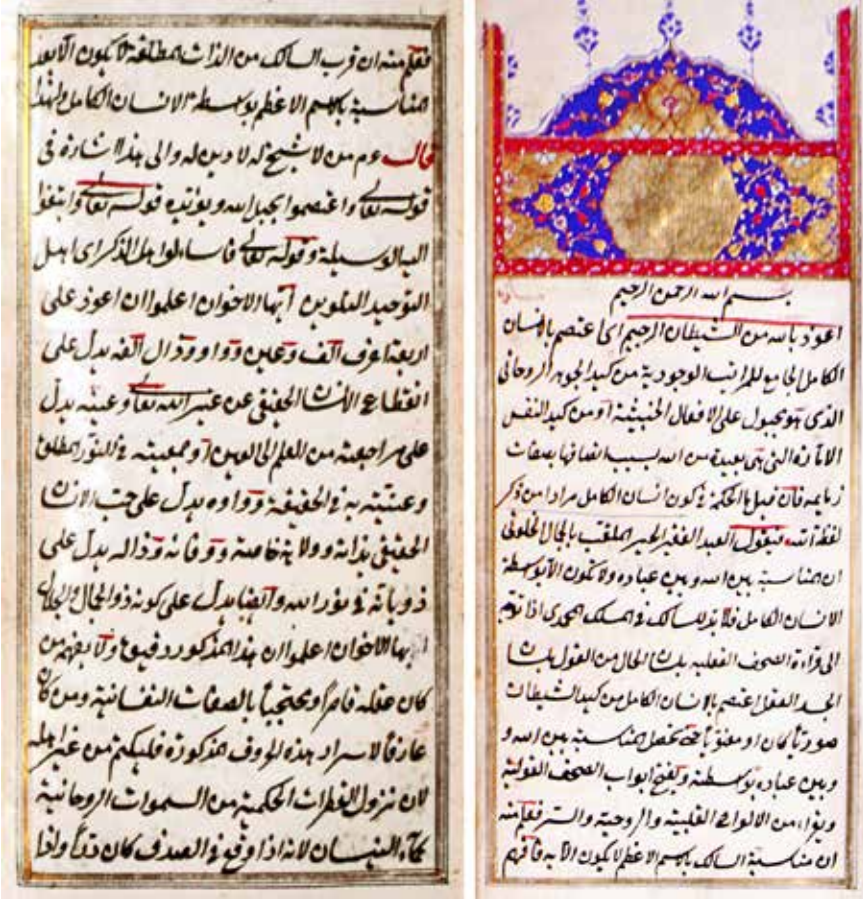 بسم الله الرحمن الرحيم
اعوذ بالله من الشيطان الرجيم اى اعتصم بالانسان
الكامل الجامع للمراتب الوجودية من كيد الجوهر الروحانى
الذى هو مجبول على الافعال الخبيثية او من كيد النفس
الامارة التى هى بعيدة من الله بسبب اتصافها بصفات
ذميمة فان قيل ما الحكمة فى كون انسان الكامل مرادا من ذكر
لفظة الله فيقول العبد الفقير الحقير الملقب بالجمال الخلوتى
ان المناسبة بين الله وبين عباده ولا تكون الا بوسطة
الانسان الكامل فلا بد للسالك فى المسلك المحمدى اذا توجه
الى قراءة الصحف الفعلية بلسان الحال من القول بلسان
الجسد العقل اعتصم بالانسان الكامل من كيد الشيطان
صوريا كان او معنويا حتى تحصل المناسبة بين الله و
وبين عباده بوسطته ويفتح ابواب الصحف القولية
ويقراء من الالواح القلبية والروحية والسر فعلم منه
ان مناسبة السالك بالاسم الاعظم لا يكون الا به فافهم
فعلم منه ان قرب السالك من الذات المطلقة لا يكون الا بعد
المناسبة بالاسم الاعظم بوسطة الانسان الكامل ولهذا
قال عم من لا شيخ له لا دين له والى هذا اشارة فى
قوله تعالى واعتصموا بحبل الله ويؤيده قوله تعالى وابتغوا
اليه الوسيلة وقوله تعالى فاسئلوا اهل الذكر اى اهل
التوحيد التلوين ايها الاخوان اعلموا ان اعوذ على
اربعة احرف الف وعين وواو وذال الفه يدل على
انقطاع الانسان الحقيقى عن غير الله تعالى وعينه يدل
على مراجعته من العلم الى العين او معيته فى النور المطلق
وعينيته به فى الحقيقة وواوه يدل على حب الانسان
الحقيقى بذاته وولاية خاصة ووفائه وذاله يدل على
ذوباته فى نور الله وايضا يدل على كونه ذو الجمال والجلال
ايها الاخوان اعلموا ان هذا المذكور دقيق ولا يفهم من
كان عقله قاصرا ومحتجبا بالصفات النفسانية ومن كان
عارفا لاسرار هذه الحروف المذكورة فليكتم من غير اهله
لان نزول القطرات الحكمية من السموات الروحانية
كماء النيسان لانه اذا وقع فى الصدف كان درا واذا